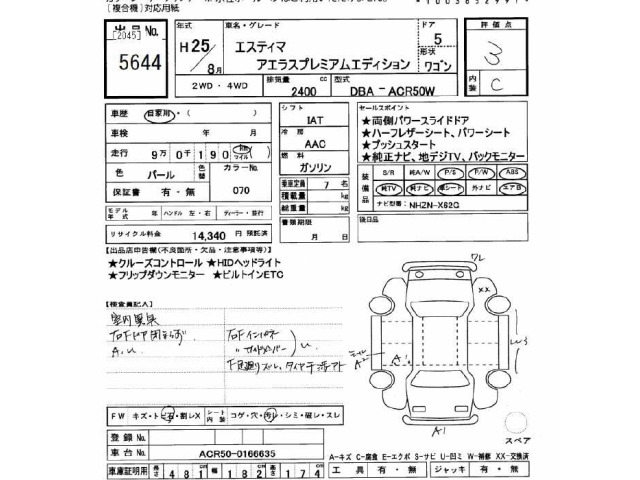 (複合機)対応用紙
出品 No.
[2045]
5644
年式
H25/8月
車名・グレード
エスティマ
アエラスプレミアムエディション
ドア
5
形状
ワゴン
評価点
3
内装
C
2WD・4WD
排気量
2400 cc
型式
DBA - ACR50W
車歴 自家用・( )
車検 年 月
走行 9万0千190 km マイル
色 パール 色替 カラーNo. 070
保証書 有・無
モデル年式 年 ハンドル 左・右 ディーラー・並行
リサイクル料金 14,340 円 預託済
シフト
IAT
冷房
AAC
燃料
ガソリン
乗車定員 7 名
積載量 kg
総重量 kg
書類期限
月 日
セールスポイント
★両側パワースライドドア
★ハーフレザーシート、パワーシート
★プッシュスタート
★純正ナビ、地デジTV、バックモニター
装備品 S/R 純A/W P/S P/W ABS
純TV 純ナビ 革シート 外ナビ エアB
ナビ型番: NHZN-X62G
後日品
【出品店申告欄(不良箇所・欠品・注意事項等)】
★クルーズコントロール ★HIDヘッドライト
★フリップダウンモニター ★ビルトインETC
【検査員記入】
A.U.
ワレ
XX
W3
A2
A1
A1
スペア
FW キズ・トビ石・割レX シート内装 コゲ・穴・汚レ・シミ・破レ・スレ
登録 No.
車台 No. ACR50-0166635
車庫証明用 長さ 481cm 幅 182cm 高さ 174cm
A-キズ C-腐食 E-エクボ S-サビ U-凹ミ W-補修 XX-交換済
工具 有・無 ジャッキ 有・無